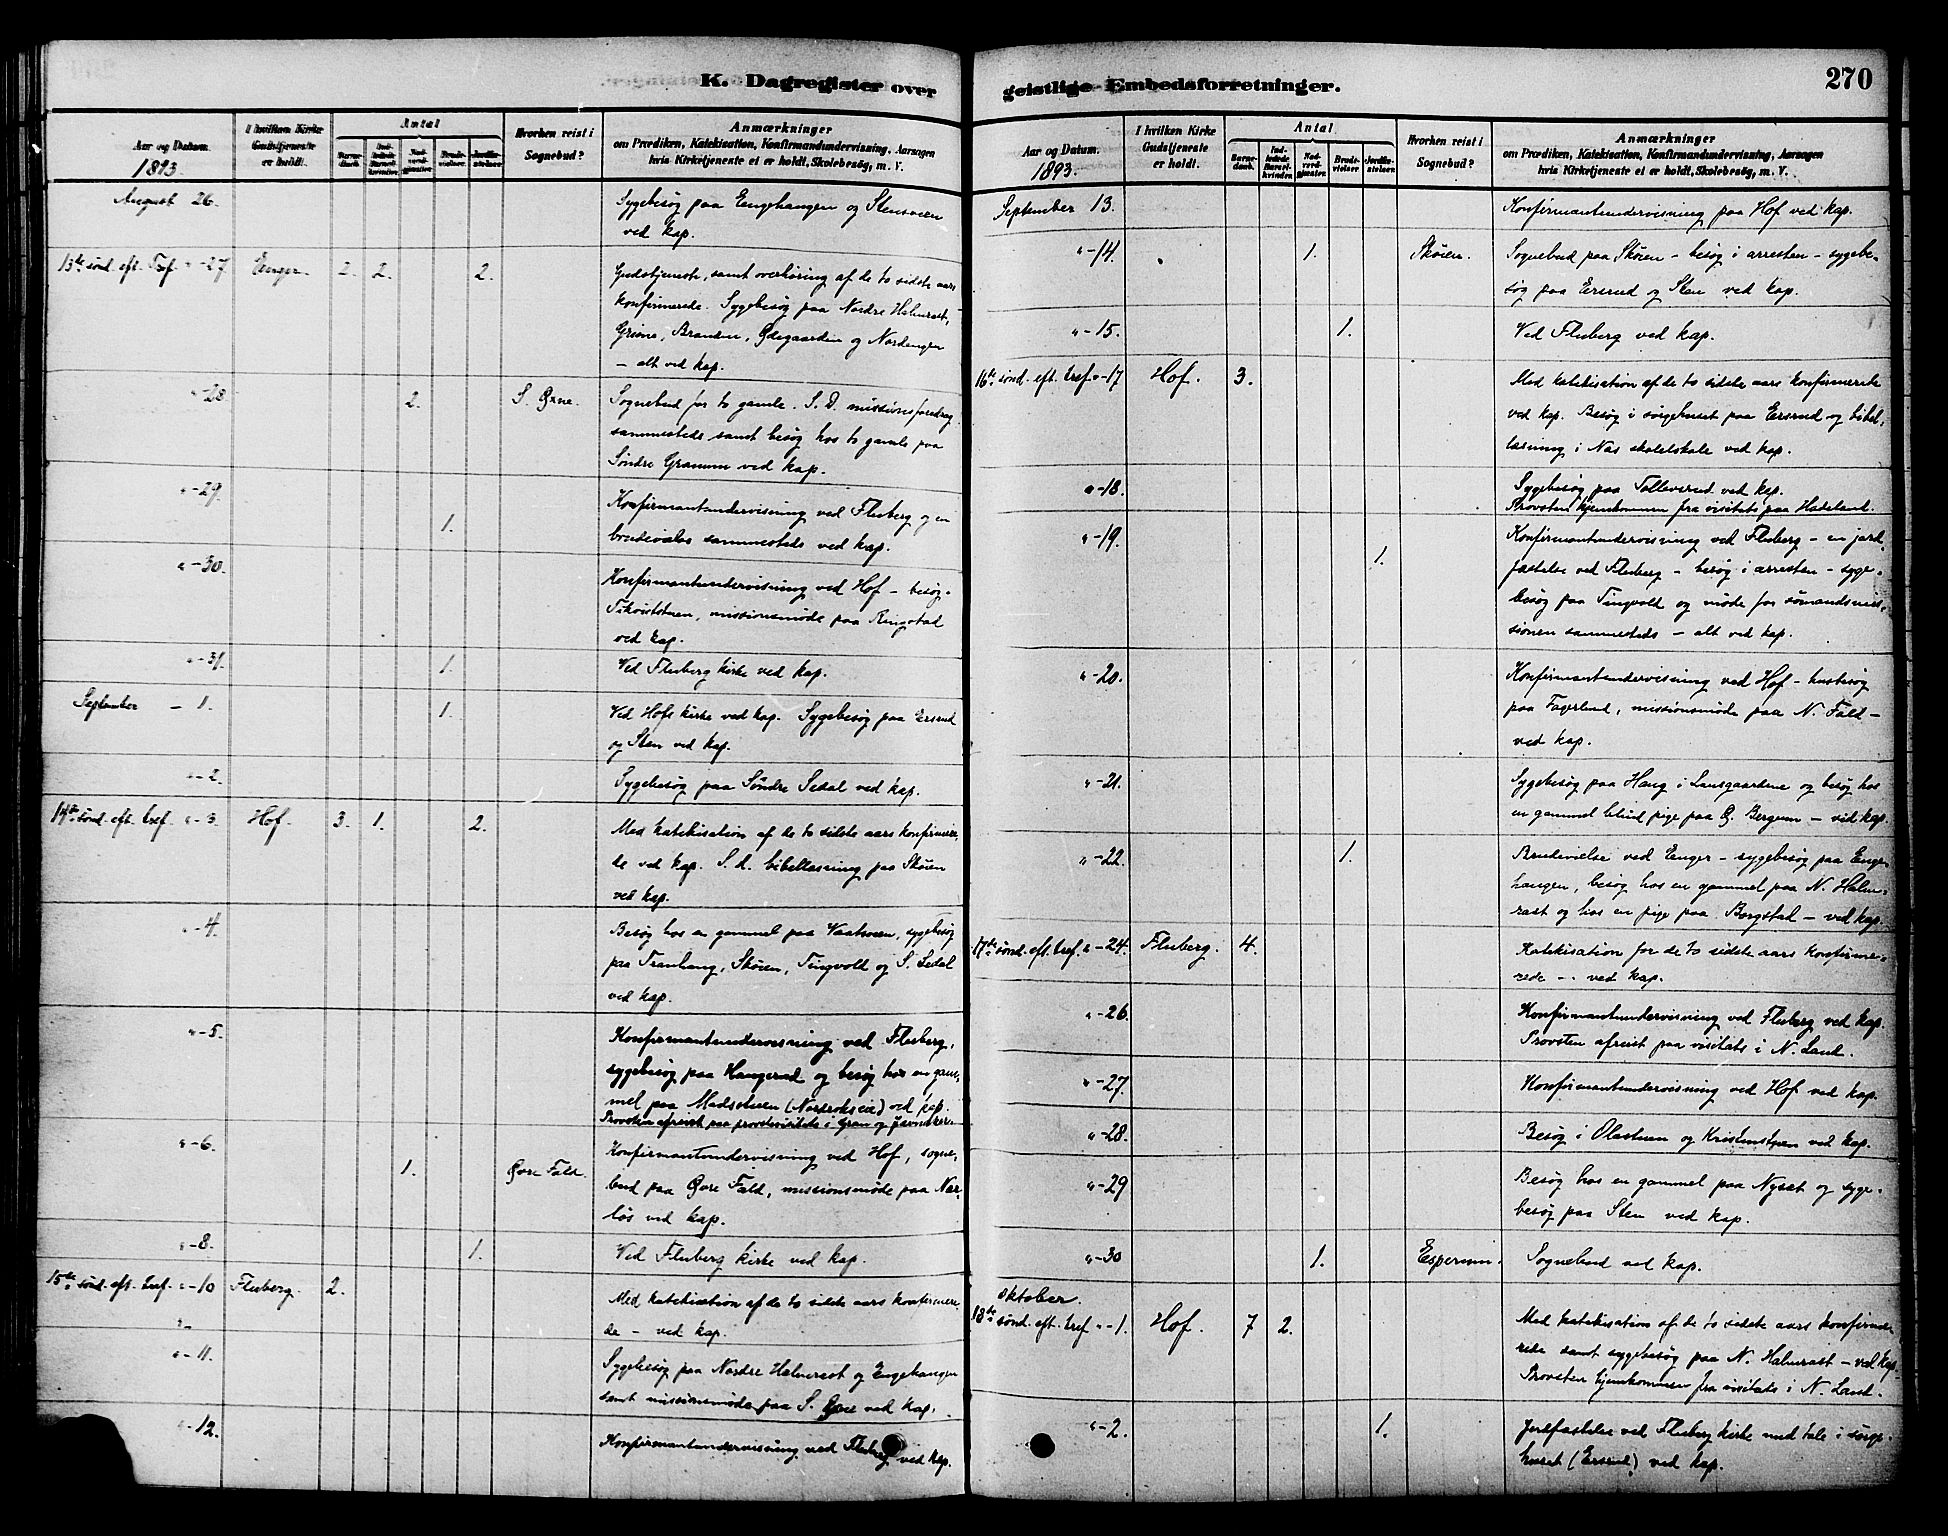 K. Dagregister over
Aar og Datum.
1893.
I hvilken Kirke Gudstjeneste er holdt.
Antal
Barnedaab.
Indledede Barselkvinder.
Nadverdgjester.
Brudevielser.
Jordfæstelser.
Hvorhen reist i Sognebud?
Anmærkninger
om Prædiken, Katekisation, Konfirmandundervisning, Aarsagen
hvis Kirketjeneste ei er holdt, Skolebesøg, m. V.
August 26.
Sygebesøg paa Engehaugen og
ved kap.
13de sønd. eft. Tref. " - 27. Enger. 2. 2. 2.
Gudstjeneste, samt overhøring af de to sidste aars
konfirmerede. Sygebesøg paa Nordre Halmrast,
Grime, Branden, Ødegaarden og Nordengen
– alt ved kap.
" - 28 2. S.
Sognebud for to gamle. S. D. missionsforedrag
sammesteds samt besøg hos to gamle paa
Søndre Granum ved kap.
" - 29. 1.
Konfirmantundervisning ved Fluberg og en
brudevielse sammesteds ved kap.
" - 30.
Konfirmantundervisning ved Hof – besøg
missionsmøde paa Ringstad
ved kap.
" - 31. 1.
Ved Fluberg kirke ved kap.
September - 1. 1.
Ved Hofs kirke ved kap. Sygebesøg paa Ersrud
og Sten ved kap.
" - 2.
Sygebesøg paa Søndre Sedal ved kap.
14de sønd. eft. tref. " - 3 Hof. 3. 1. 2.
Med katekisation af de to sidste aars konfirmere-
de ved kap. S. d. bibellæsning paa Skøien
ved kap.
" - 4.
Besøg hos en gammel paa sygebesøg
paa Tranhaug, Skøien, Tingvold og S. Sedal
ved kap.
" - 5.
Konfirmantundervisning ved Fluberg,
sygebesøg paa Haugerud og besøg hos en gam-
mel paa Madsstuen ved kap.
Provsten afreist paa provstevisitats i Gran og Jevnaker
" - 6. 1. Øvre Fald.
Konfirmantundervisning ved Hof, sogne-
bud paa Øvre Fald, missionsmøde paa
ved kap.
" - 8. 1.
Ved Fluberg kirke ved kap.
15de sønd. eft. tref. " - 10 Fluberg. 2.
Med katekisation af de to sidste aars konfirmere-
de – ved kap.
" - 11.
Sygebesøg paa Nordre Halmrast og Engehaugen
samt missionsmøde paa S. ved kap.
" - 12.
Konfirmantundervisning ved Fluberg ved kap.
geistlige Embedsforretninger.
270
Aar og Datum.
1893.
I hvilken Kirke Gudstjeneste er holdt.
Antal
Barnedaab.
Indledede Barselkvinder.
Nadverdgjester.
Brudevielser.
Jordfæstelser.
Hvorhen reist i Sognebud?
Anmærkninger
om Prædiken, Katekisation, Konfirmandundervisning, Aarsagen
hvis Kirketjeneste ei er holdt, Skolebesøg, m. V.
September 13.
Konfirmantundervisning paa Hof ved kap.
" - 14. 1. Skøien.
Sognebud paa Skøien – besøg i arresten – sygebe-
søg paa Ersrud og Sten ved kap.
" - 15. 1.
Ved Fluberg ved kap.
16de sønd. eft. tref. " - 17 Hof. 3.
Med katekisation af de to sidste aars konfirmerede
ved kap. Besøg i sørgehuset paa Ersrud og bibel-
læsning i Næs skolelokale ved kap.
" - 18.
Sygebesøg paa Tollevsrud ved kap.
Provsten hjemkommen fra visitats paa Hadeland.
" - 19. 1.
Konfirmantundervisning ved Fluberg – en jord-
fæstelse ved Fluberg – besøg i arresten – syge-
besøg paa Tingvold og møde for sømandsmis-
sionen sammesteds – alt ved kap.
" - 20.
Konfirmantundervisning ved Hof – husbesøg
paa Fagerlund, missionsmøde paa N. Fald –
ved kap.
" - 21.
Sygebesøg paa Haug i Landsgaardene og besøg hos
en gammel blind pige paa Ø. Bergum – ved kap.
" - 22. 1.
Brudevielse ved Enger – sygebesøg paa Enge-
haugen, besøg hos en gammel paa N. Halm-
rast og hos en pige paa Borgstad – ved kap.
17de sønd. eft. tref. " - 24. Fluberg. 4.
Katekisation for de to sidste aars konfirme-
rede – ved kap.
" - 26.
Konfirmantundervisning ved Fluberg ved kap.
Provsten afreist paa visitats i N. Land.
" - 27.
Konfirmantundervisning ved Hof ved kap.
" - 28.
Besøg i Olastuen og Kristinstuen ved kap.
" - 29
Besøg hos en gammel paa Nysæt og syge-
besøg paa Sten ved kap.
" - 30 1. Esperum.
Sognebud ved kap.
Oktober.
18de sønd. eft. tref. " - 1. Hof. 7 2.
Med katekisation af de to sidste aars konfirme-
rede samt sygebesøg paa N. Halmrast – ved kap.
Provsten hjemkommen fra visitats i N. Land.
" - 2. 1.
Jordfæstelse ved Fluberg kirke med tale i sørge-
huset (Ersrud) ved kap.